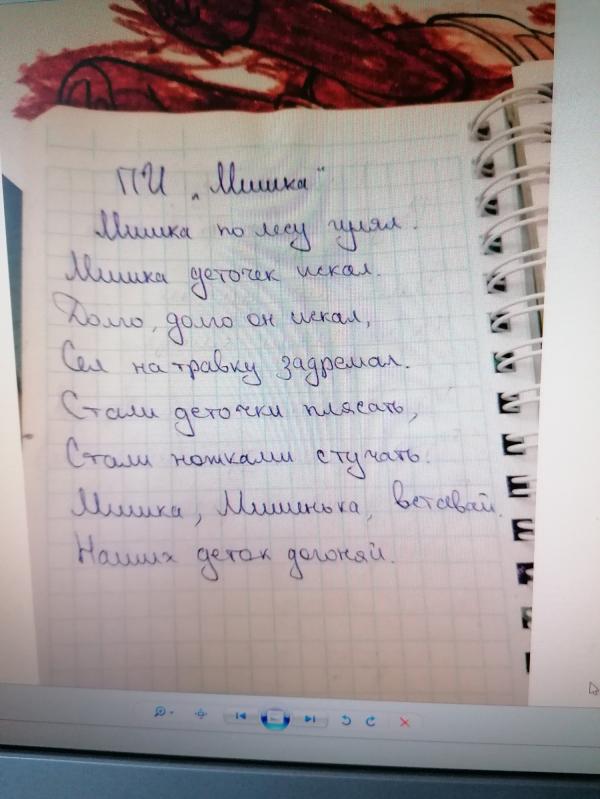 ПИ „Мишка"
Мишка по лесу гулял.
Мишка деточек искал.
Долго, долго он искал,
Сел на травку задремал.
Стали деточки плясать,
Стали ножками стучать.
Мишка, Мишенька, вставай.
Наших деток догоняй.